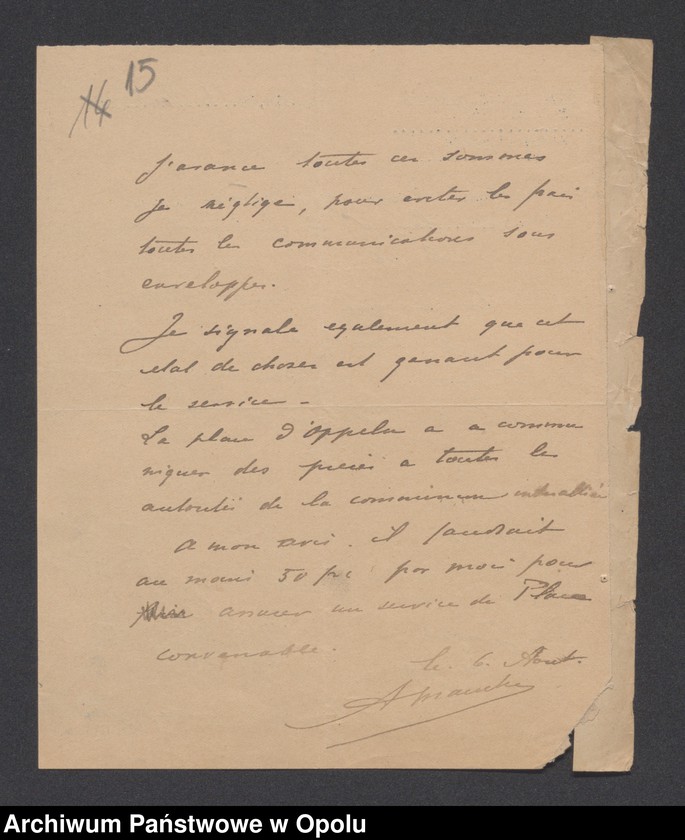 14 15
J'avance toutes ces sommes
je néglige, pour eviter les frais
toutes les communications sous
enveloppes.
Je signale egalement que cet
etat de choses est genant pour
le service -
La place d'Oppeln a a commu
niquer des pieces a toutes les
autorités de la commission interalliée
a mon avis. il faudrait
au moins 50 frs par mois pour
assurer un service de Place
convenable.
le 6 Aout.
Archiwum Państwowe w Opolu